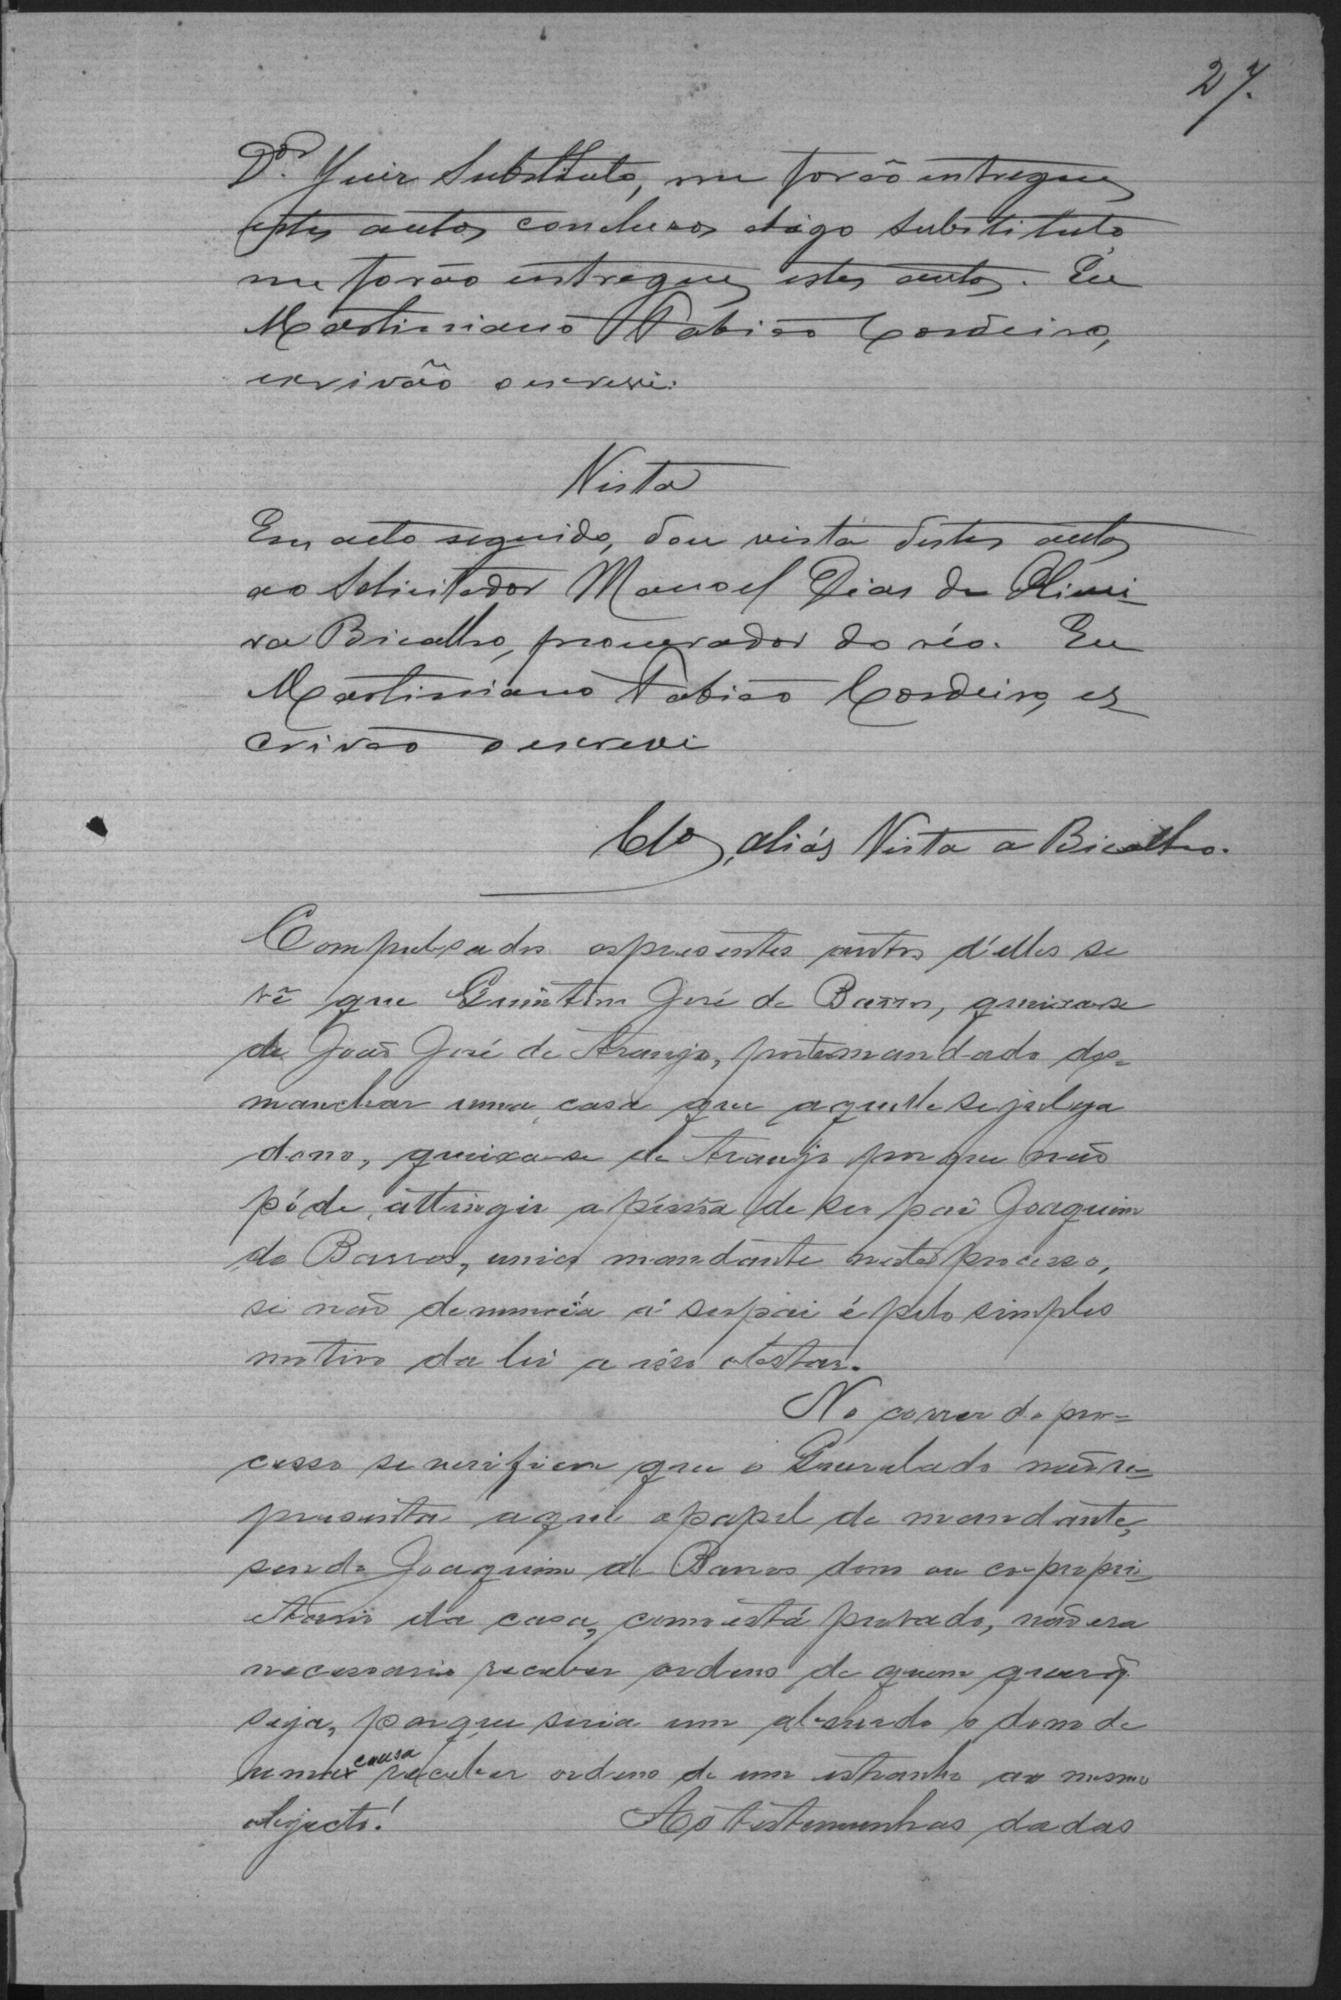 27.
Dor. Juiz Substituto, me forão entregues
estes autos conclusos digo Substituto
me forão entregues estes autos. Eu
Martiniano Fabião Cordeiro,
escrivão o escrevi.
Vista
Em acto seguido, dou vista destes autos
ao Solicitador Manoel Dias de Olivei-
ra Bicalho, procurador do réo. Eu
Martiniano Fabião Cordeiro, es
crivão o escrevi
Clo, aliás Vista a Bicalho.
Compulsados os presentes autos d'elles se
vê que Quintino José de Barros, queixa-se
de João José de Araujo, por ter mandado des=
manchar uma casa que aquelle se julga
dono, queixa-se de Araujo porque não
póde attingir a pessôa de seu pai Joaquim
de Barros, unico mandante neste processo,
si não denuncia á seu pai é pelo simples
motivo da lei a isso obstar.
No correr do pro=
cesso se verifica que o Querelado não re=
presenta aqui o papel de mandante,
sendo Joaquim de Barros dono ou co-propri-
etario da casa, como está provado, não era
necessario receber ordens de quem quer q̃
seja, porque seria um absurdo o dono de
uma causa receber ordens de um estranho ao mesmo
objecto! As testemunhas dadas